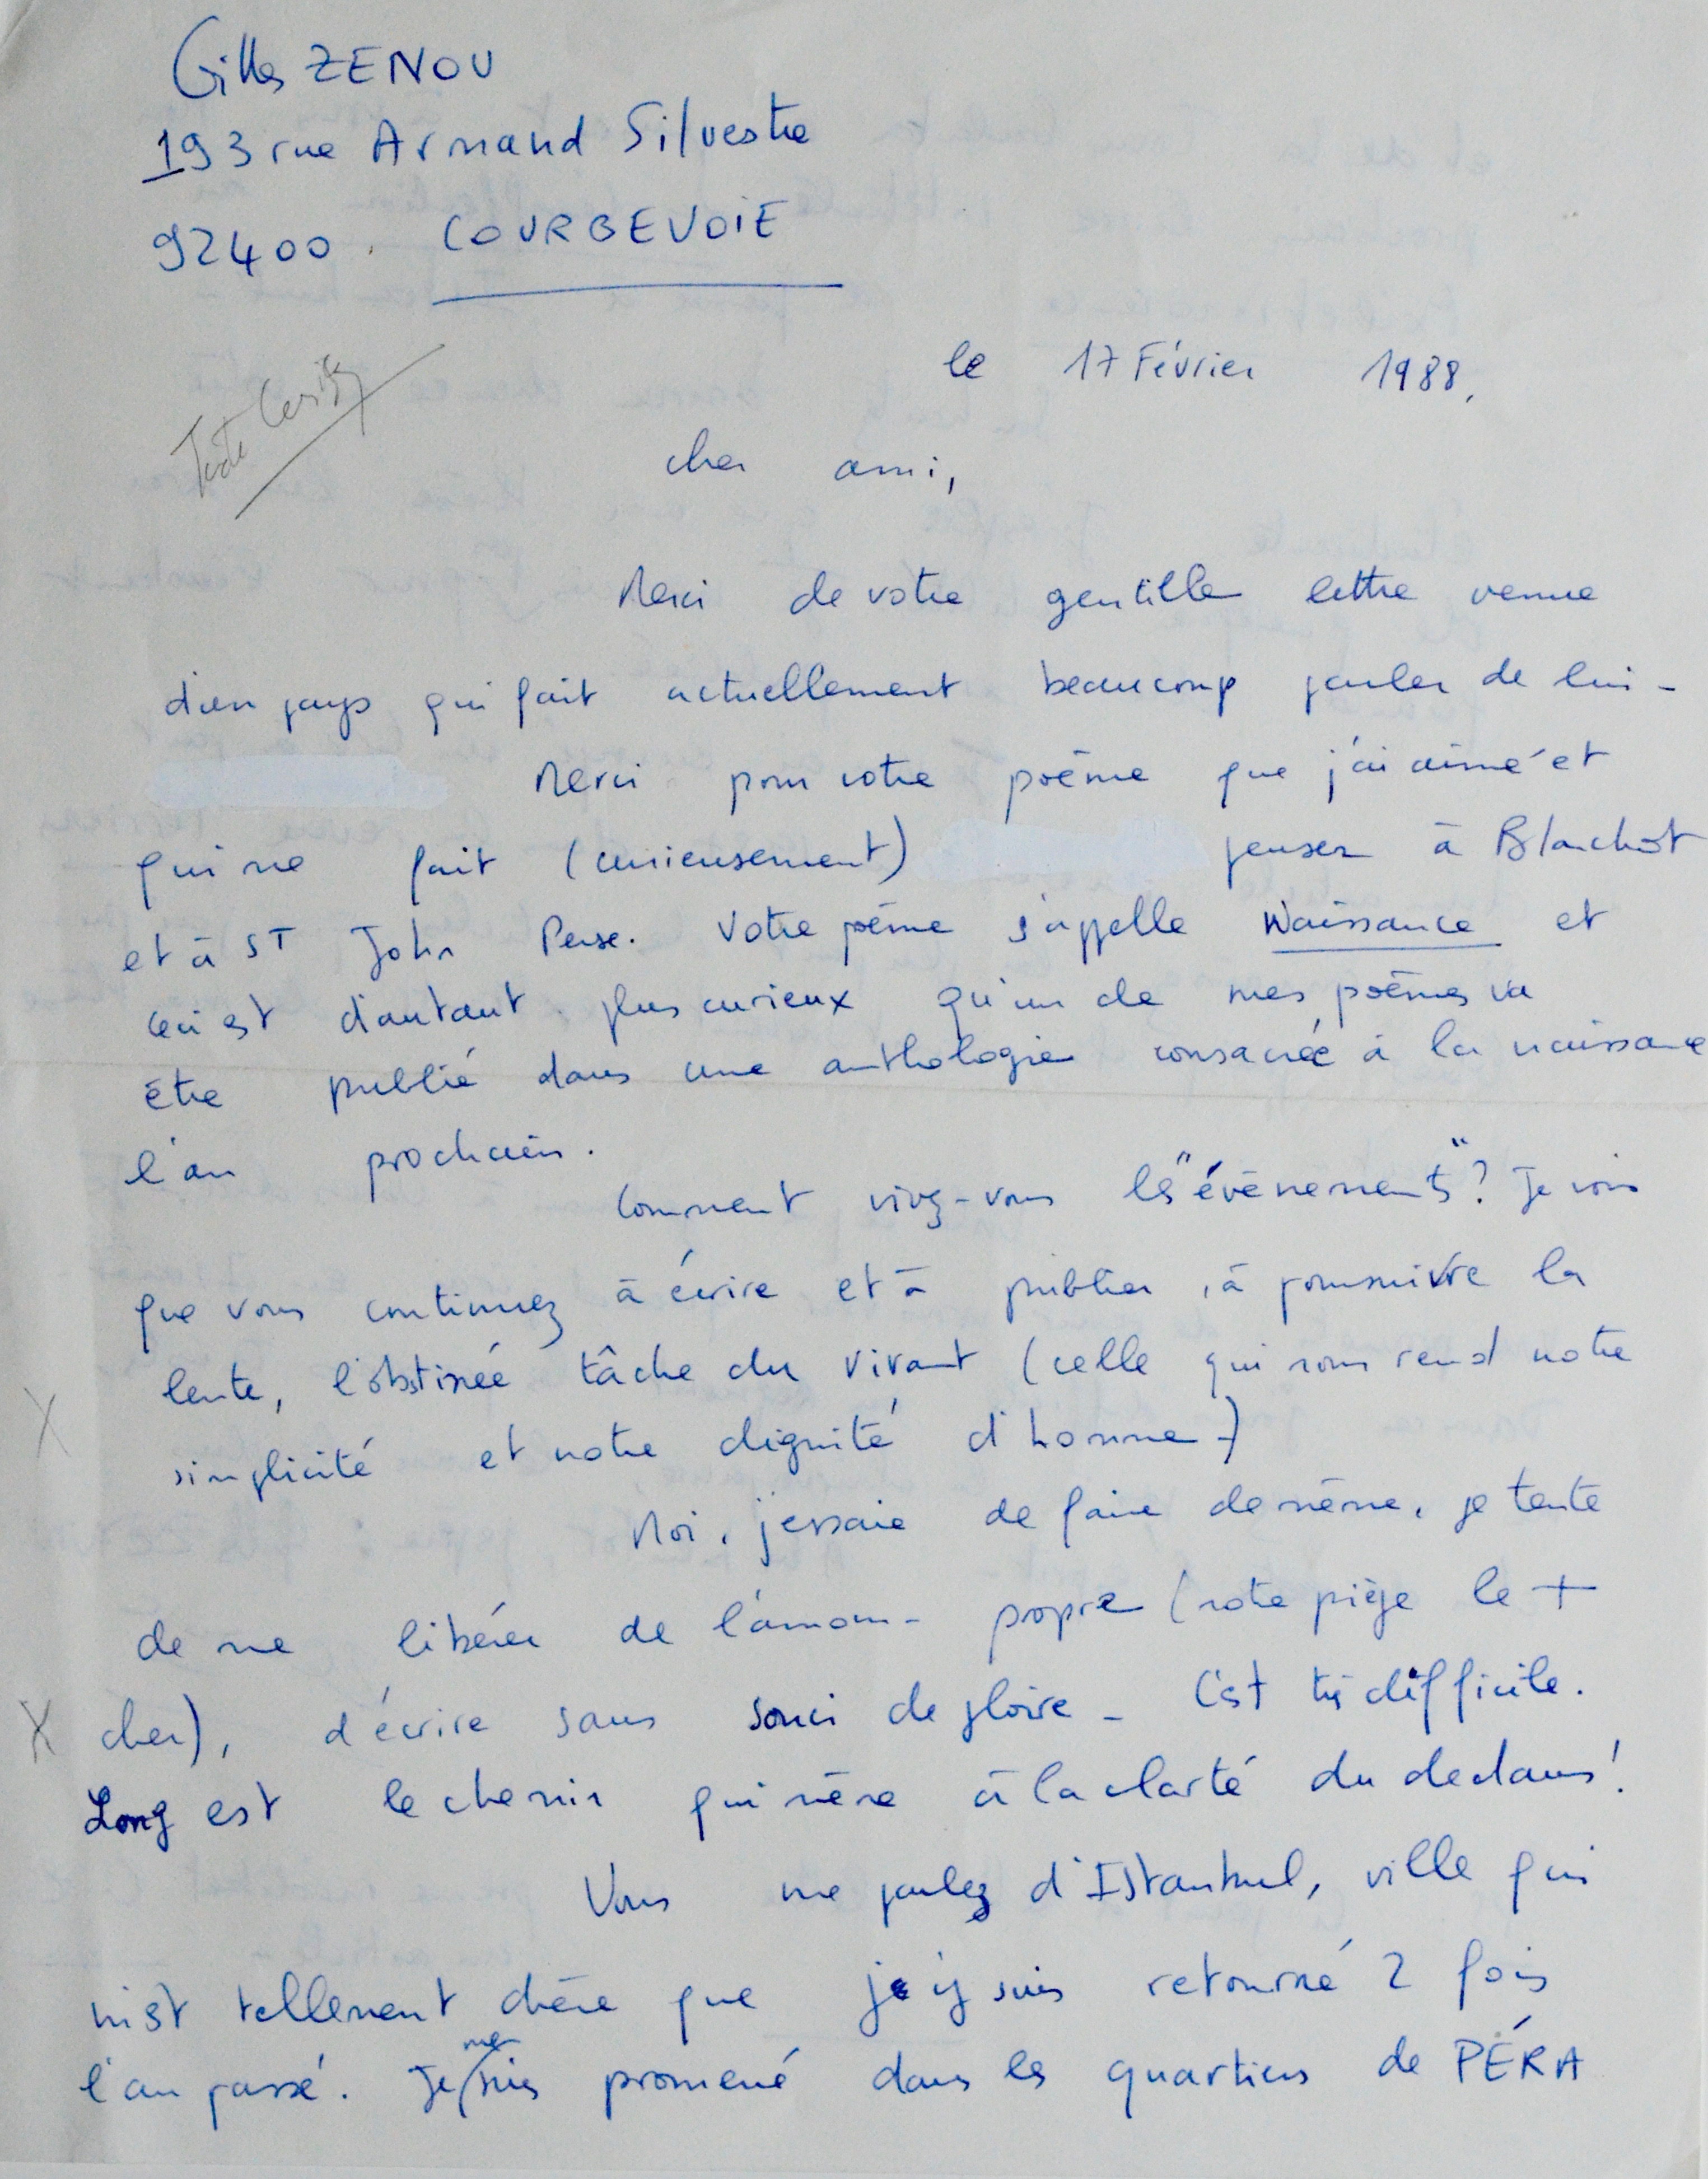 Gilles ZENOU
193 rue Armand Silvestre
92400. COURBEVOIE
le 17 Février 1988,
Texte
cher ami,
Merci de votre gentille lettre venue
d'un pays qui fait actuellement beaucoup parler de lui -
Merci pour votre poème que j'ai aimé et
qui me fait (curieusement) penser à Blanchot
et à ST John Perse. Votre poème s'appelle Naissance et
ceci est d'autant plus curieux qu'un de mes poèmes va
être publié dans une anthologie consacrée à la naissance
l'an prochain.
Comment vivez-vous les "évènements"? Je vois
que vous continuez à écrire et à publier, à poursuivre la
lente, l'obstinée tâche du vivant (celle qui nous rend notre
simplicité et notre dignité d'homme -)
Moi, j'essaie de faire de même, je tente
de me libérer de l'amour-propre (notre piège le +
cher), d'écrire sans souci de gloire - C'est très difficile.
Long est le chemin qui mène à la clarté du dedans!
Vous me parlez d'Istanbul, ville qui
m'est tellement chère que je y suis retourné 2 fois
l'an passé. Je me suis promené dans les quartiers de PÉRA